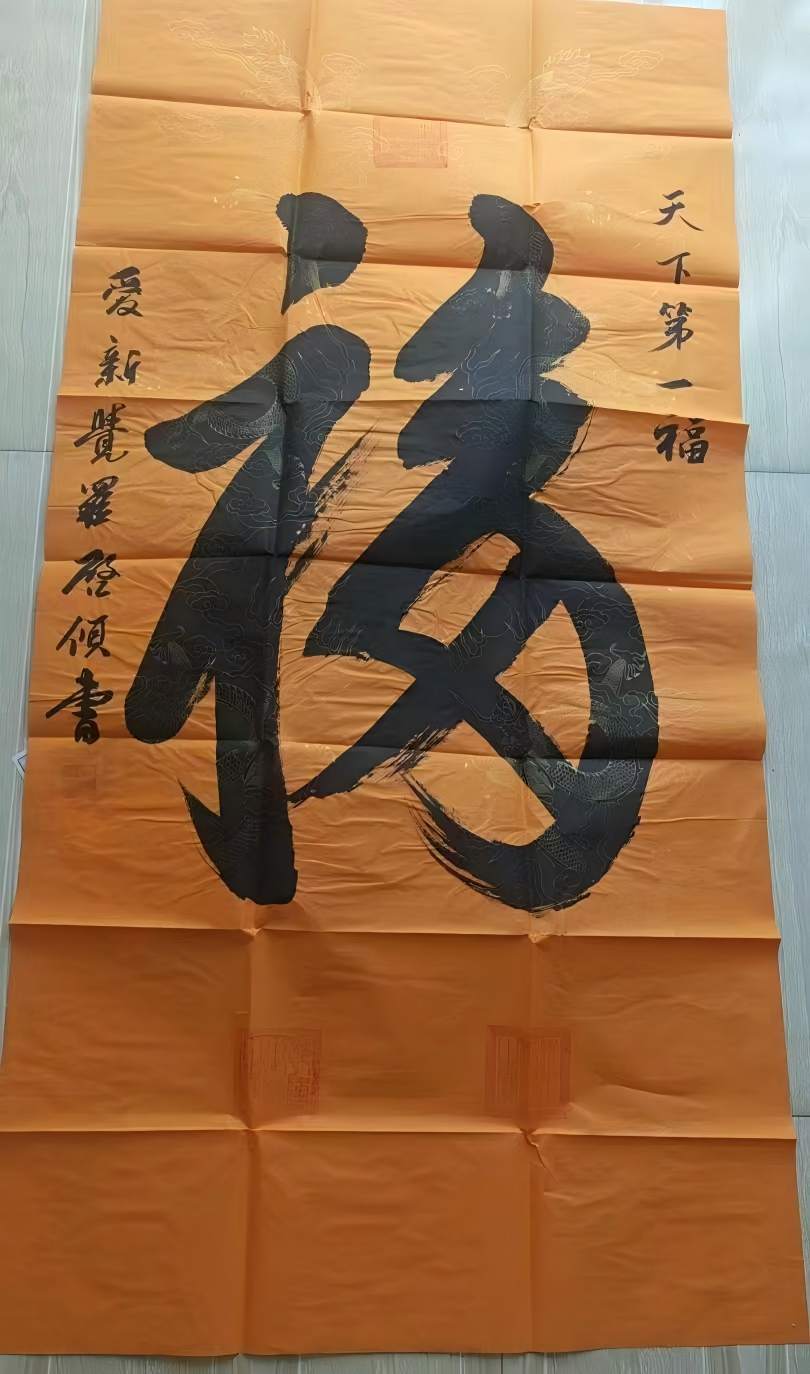 天下第一福
福
愛新覺羅啓傾書